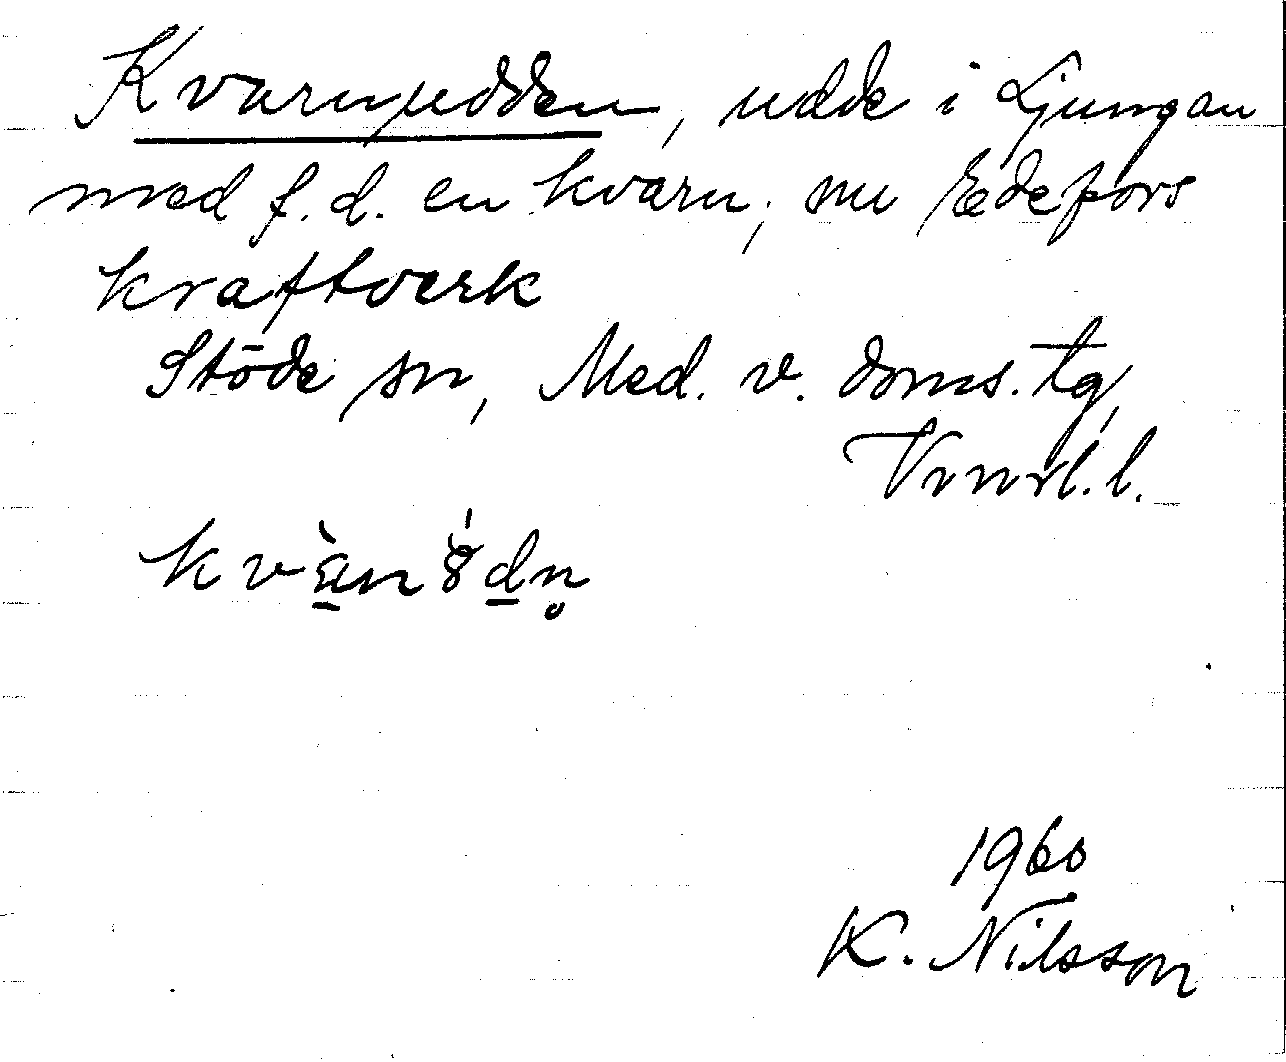 Kvarnudden, udde i Ljungan
med f.d. en kvarn, nu Edefors
kraftverk
Stöde sn, Med. v. doms. tg,
Vrnrl. l.
1960
K. Nilsson